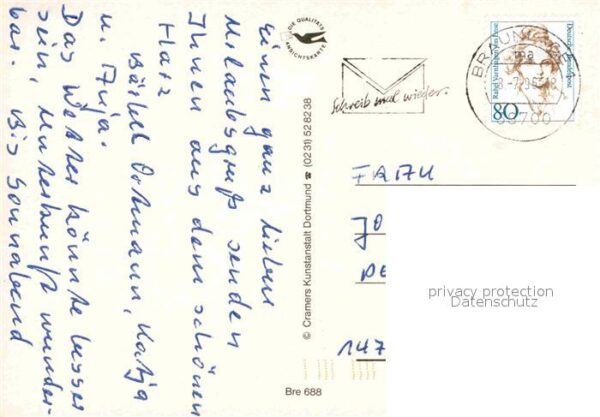 Einen ganz lieben
Urlaubsgruß senden
Ihnen aus dem schönen
Harz
Bärbel Ortmann, Katja
u. Anja.
Das Wetter könnte besser
sein, Unterkunft wunder-
bar. Bis Sonnabend
DIE QUALITÄTS
ANSICHTSKARTE
© Cramers Kunstanstalt Dortmund ☎ (0231) 52 82 38
Bre 688
Schreib mal wieder.
BRAUNL
Rahel Varnhagen von Ense
Deutsche Bundespost
80
700
FRAU
JO
147
privacy protection
Datenschutz